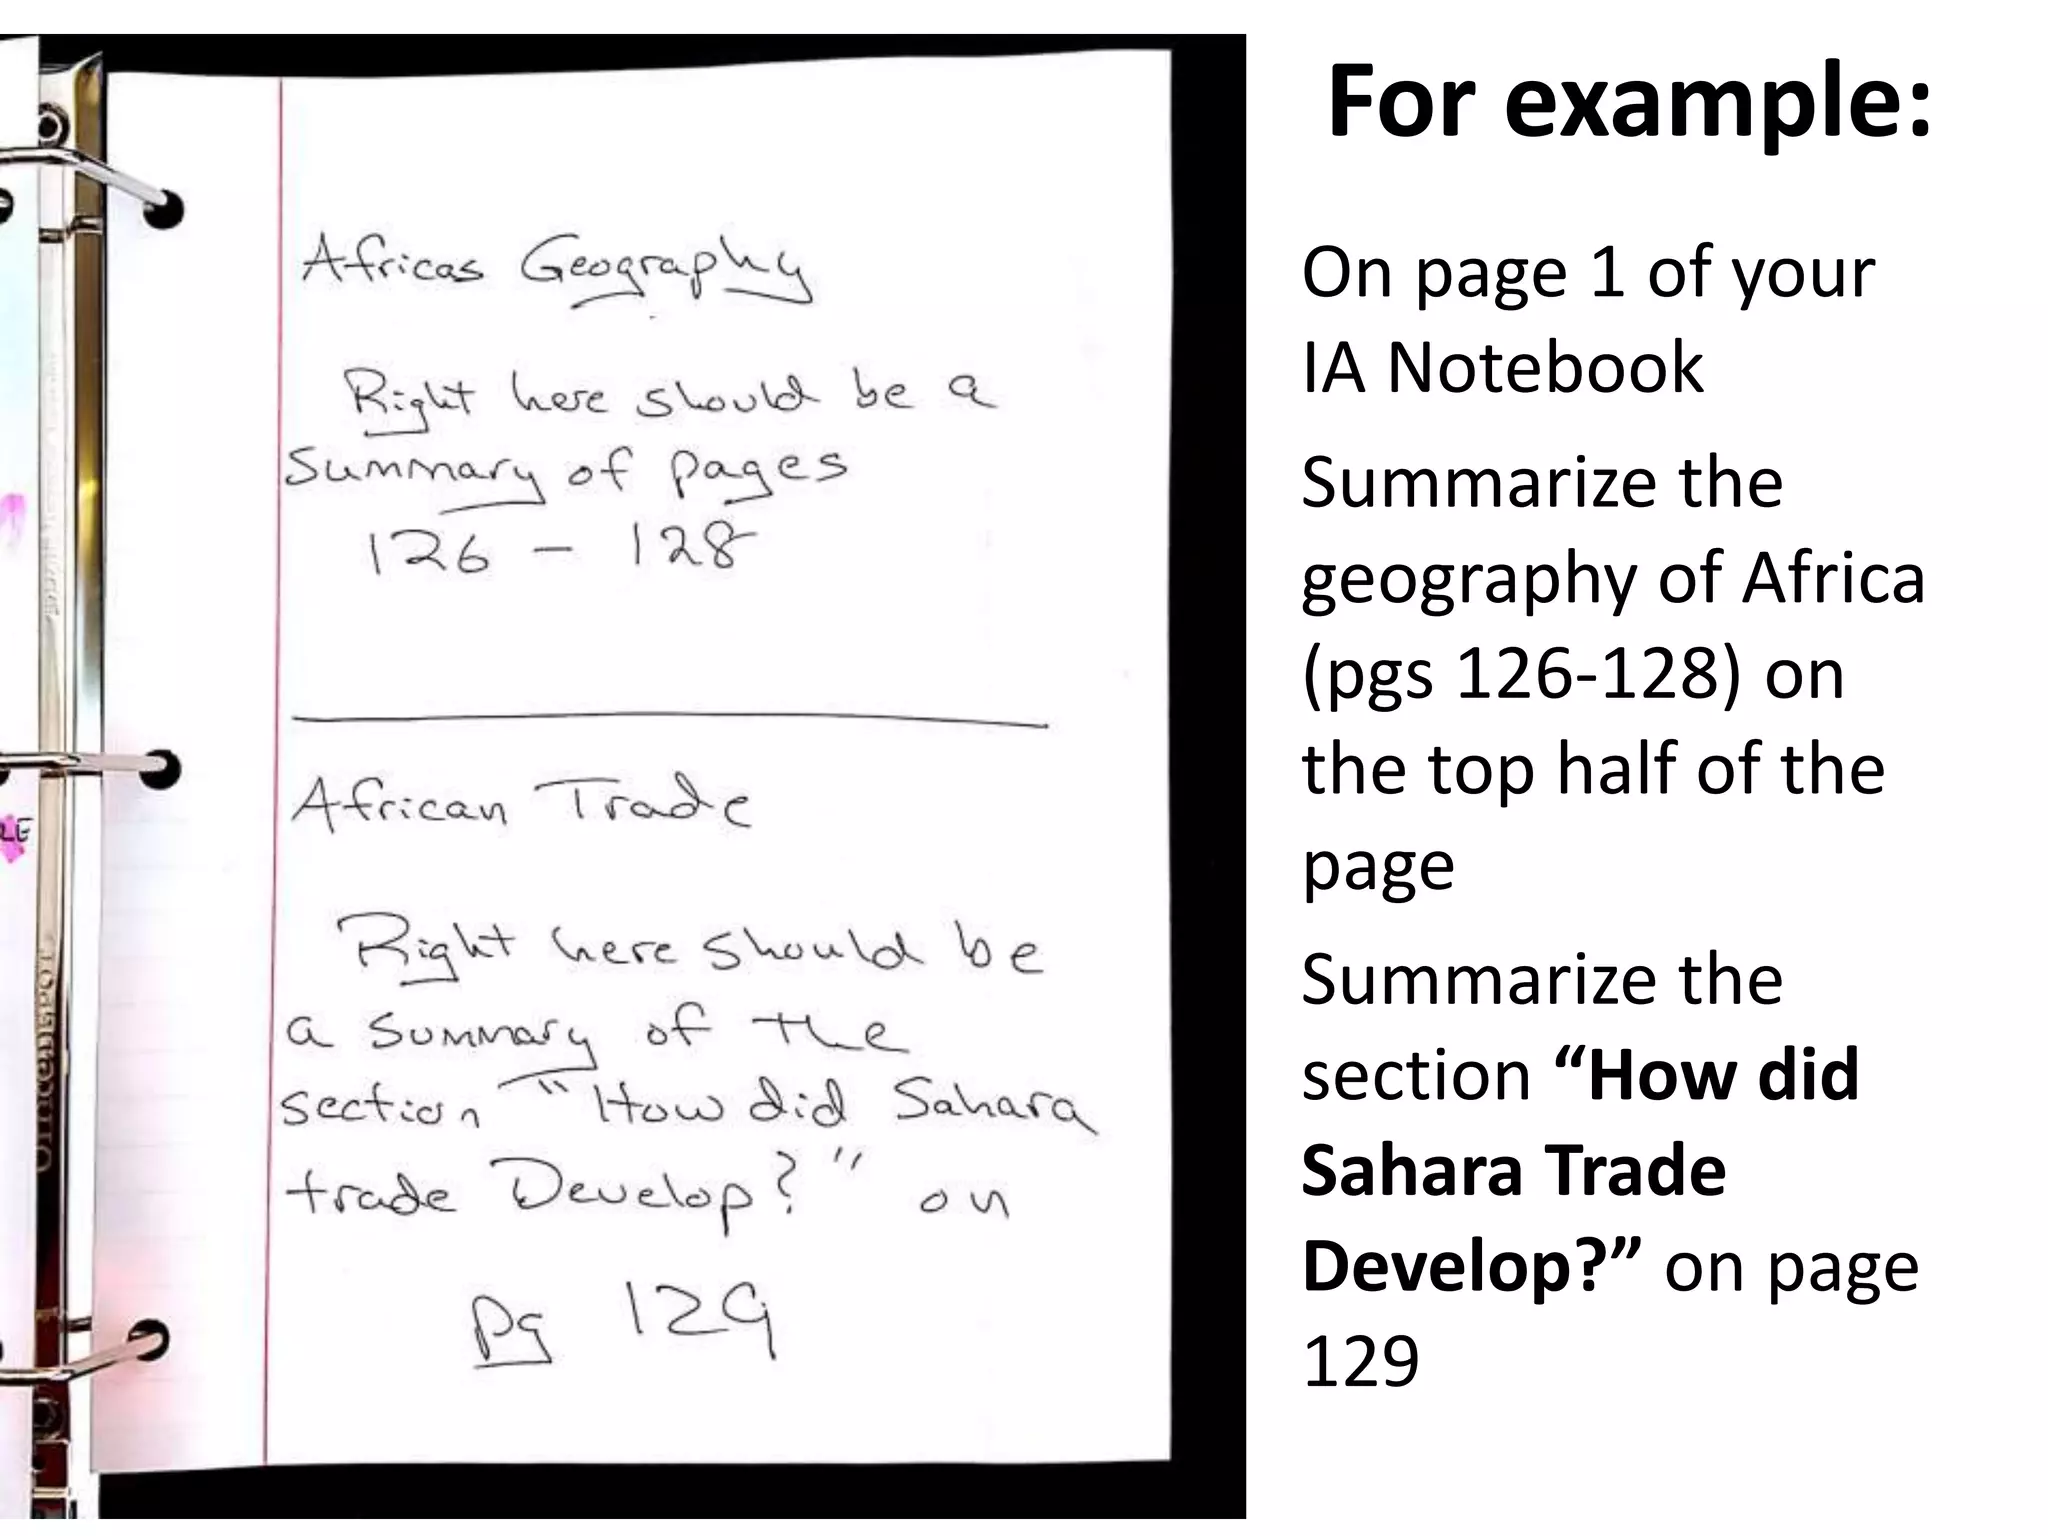 Africas Geography
Right here should be a
Summary of pages
126 - 128
African Trade
Right here should be
a summary of the
section "How did Sahara
trade Develop?" on
pg 129
RE
For example:
On page 1 of your
IA Notebook
Summarize the
geography of Africa
(pgs 126-128) on
the top half of the
page
Summarize the
section “How did
Sahara Trade
Develop?” on page
129